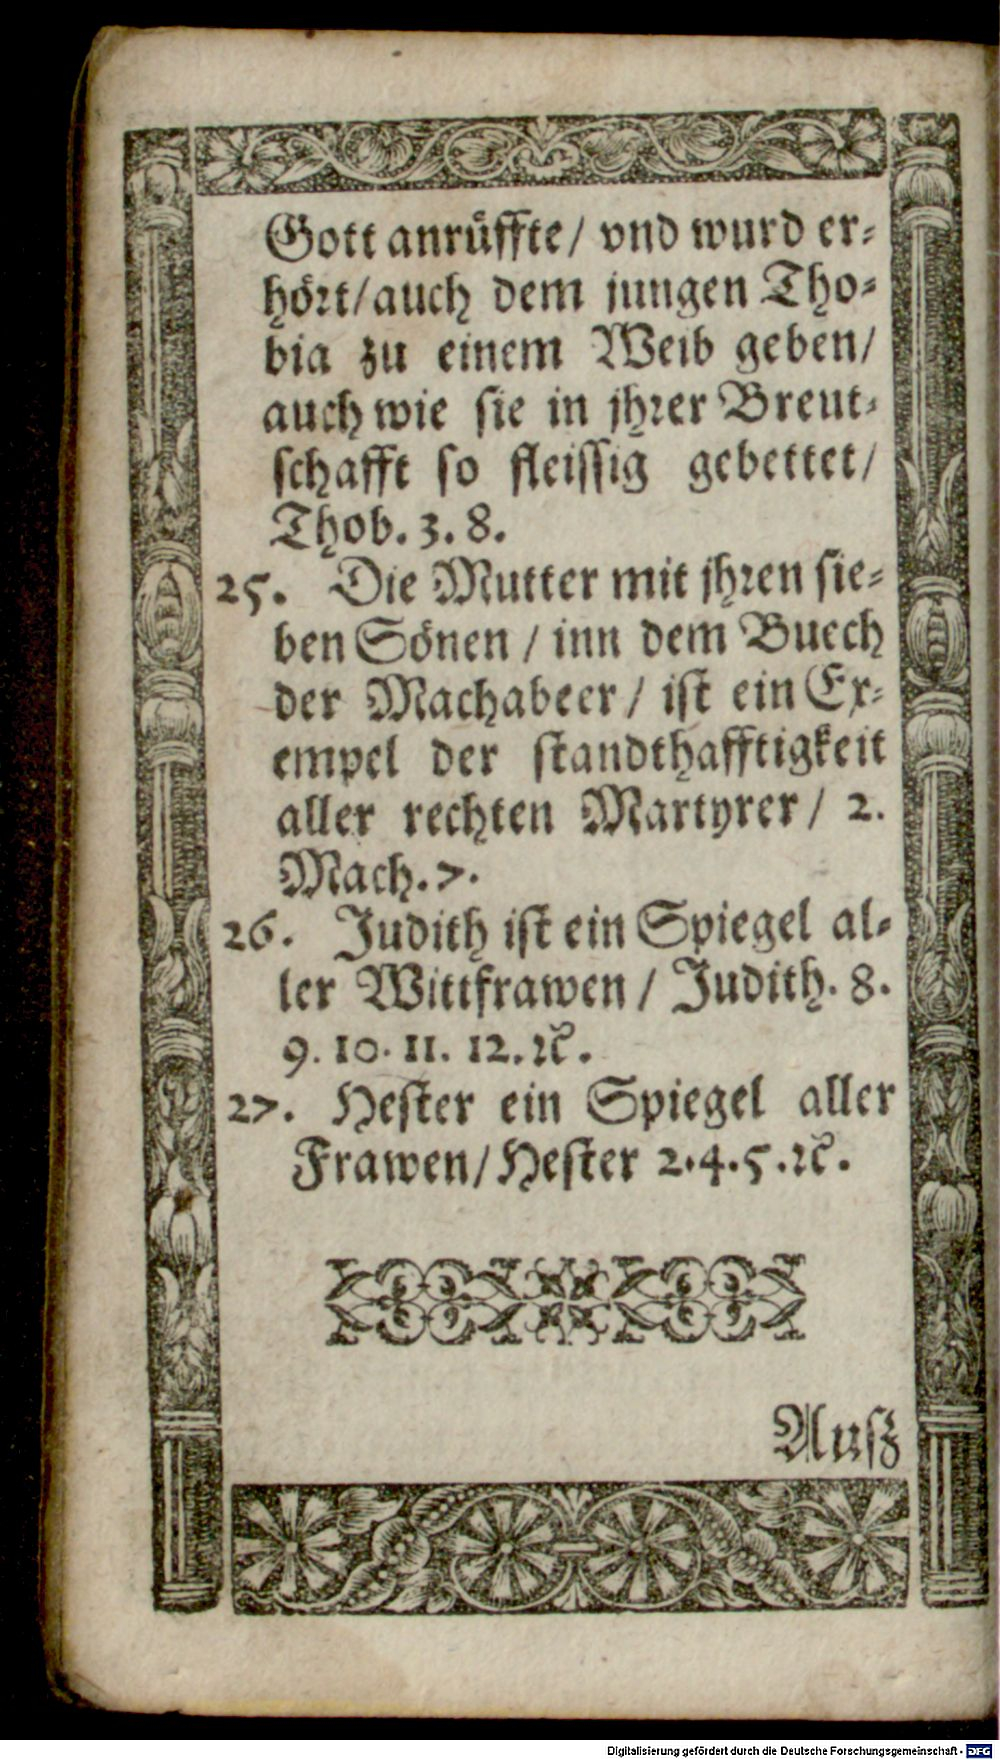 Gott anrüffte/ vnd wurd er-
hört/ auch dem jungen Tho-
bia zu einem Weib geben/
auch wie sie in jhrer Breut-
schafft so fleissig gebettet/
Thob. 3. 8.
25. Die Mutter mit jhren sie-
ben Sönen / inn dem Buech
der Machabeer/ ist ein Ex-
empel der standthafftigkeit
aller rechten Martyrer/ 2.
Mach. 7.
26. Judith ist ein Spiegel al-
ler Wittfrawen / Judith. 8.
9. 10. 11. 12. ꝛc.
27. Hester ein Spiegel aller
Frawen/ Hester 2. 4. 5. ꝛc.
Ausz
Digitalisierung gefördert durch die Deutsche Forschungsgemeinschaft - DFG